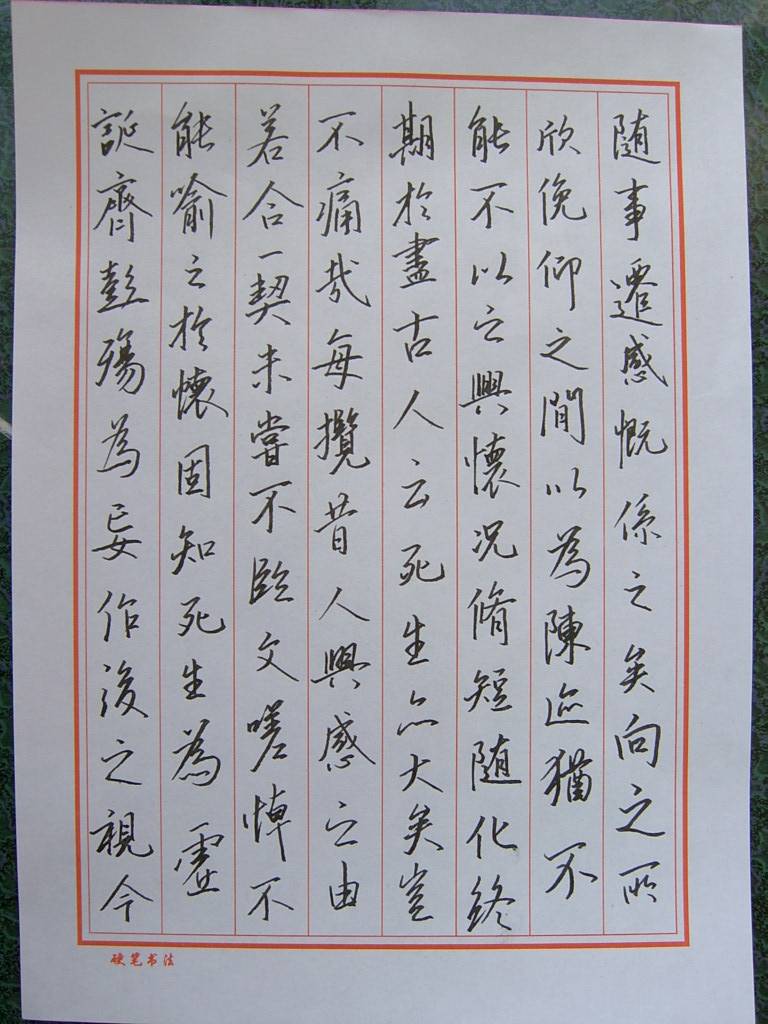 随事遷感慨係之矣向之所
欣俛仰之間以為陳迹猶不
能不以之興懷況脩短随化終
期於盡古人云死生亦大矣豈
不痛哉每攬昔人興感之由
若合一契未嘗不臨文嗟悼不
能喻之於懷固知死生為虛
誕齊彭殤為妄作後之視今
硬笔书法